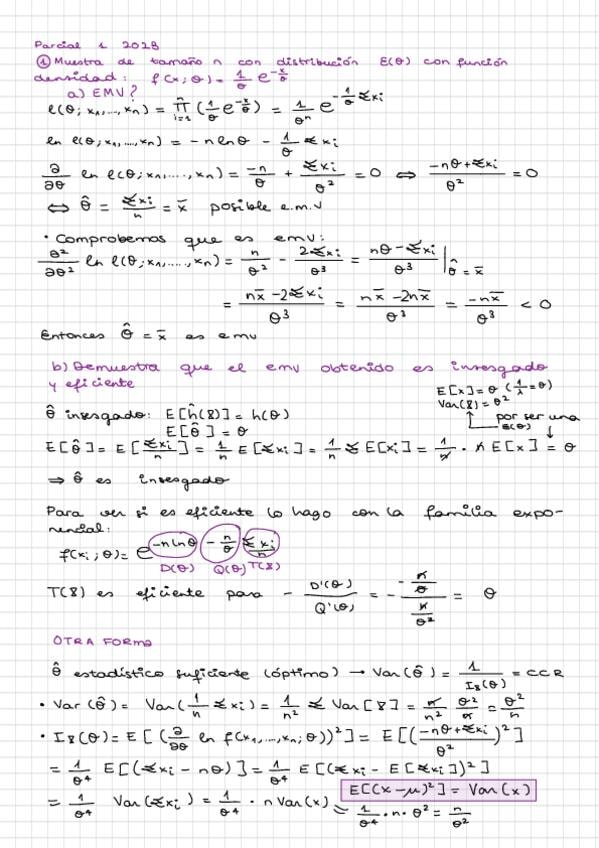 Parcial 1 202B
① Muestra de tamaño n con distribución E(θ) con función
densidad: f(x; θ) = 1/θ e^(-x/θ)
a) EMV?
l(θ; x₁,..., xₙ) = ∏ᵢ₌₁ⁿ (1/θ e^(-x/θ)) = 1/θⁿ e^(-1/θ Σxᵢ)
ln l(θ; x₁,..., xₙ) = -n ln θ - 1/θ Σxᵢ
∂/∂θ ln l(θ; x₁,....., xₙ) = -n/θ + Σxᵢ/θ² = 0 ⟺ (-nθ + Σxᵢ)/θ² = 0
⟺ θ̂ = Σxᵢ/n = x̄ posible e.m.v
• Comprobemos que es emv:
∂²/∂θ² ln l(θ; x₁,....., xₙ) = n/θ² - 2Σxᵢ/θ³ = (nθ - Σxᵢ)/θ³ |θ̂ = x̄
= (nx̄ - 2Σxᵢ)/θ³ = (nx̄ - 2nx̄)/θ³ = -nx̄/θ³ < 0
Entonces θ̂ = x̄ es emv
b) Demuestra que el emv obtenido es insesgado
y eficiente
E[x] = θ (1/λ = θ)
Var(X) = θ²
por ser una
E(θ)
θ̂ insesgado: E[ĥ(X)] = h(θ)
E[θ̂] = θ
E[θ̂] = E[Σxᵢ/n] = 1/n E[Σxᵢ] = 1/n Σ E[xᵢ] = 1/n · n E[x] = θ
⇒ θ̂ es insesgado
Para ver si es eficiente lo hago con la familia expo-
nencial:
f(xᵢ; θ) = e^(-n ln θ - n/θ Σxᵢ/n)
D(θ) Q(θ) T(X)
T(X) es eficiente para - D'(θ)/Q'(θ) = - (-n/θ)/(n/θ²) = θ
OTRA FORMA
θ̂ estadístico suficiente (óptimo) → Var(θ̂) = 1/I_X(θ) = CCR
• Var(θ̂) = Var(1/n Σxᵢ) = 1/n² Σ Var[X] = n/n² θ²/n = θ²/n
• I_X(θ) = E[(∂/∂θ ln f(x₁,...,xₙ; θ))²] = E[((-nθ + Σxᵢ)/θ²)²]
= 1/θ⁴ E[(Σxᵢ - nθ)] = 1/θ⁴ E[(Σxᵢ - E[Σxᵢ])²]
E[(x-μ)²] = Var(x)
= 1/θ⁴ Var(Σxᵢ) = 1/θ⁴ · n Var(x) = 1/θ⁴ · n · θ² = n/θ²